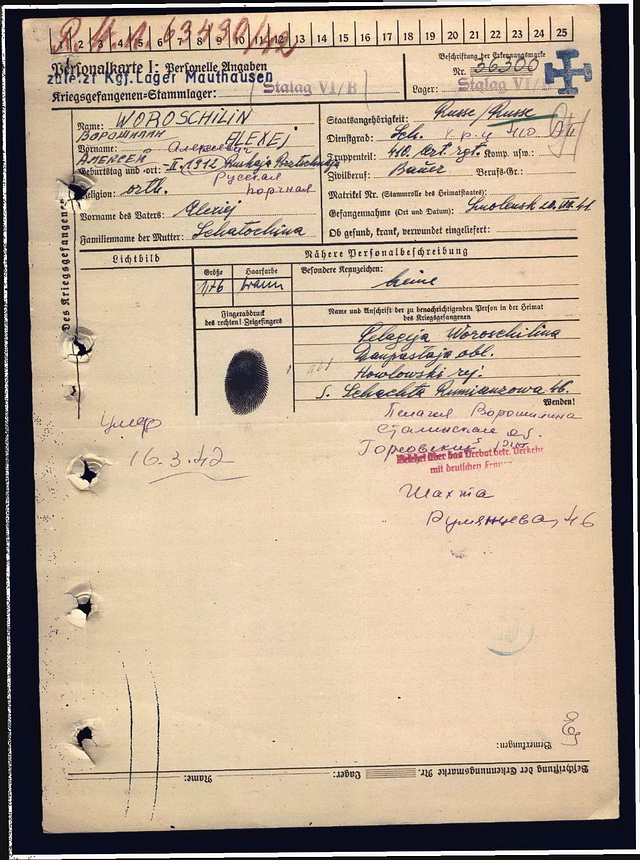 1 2 3 4 5 6 7 8 9 10 11 12 13 14 15 16 17 18 19 20 21 22 23 24 25
Personalkarte I: Personelle Angaben
Beschriftung der Erkennungsmarke
zuletzt Kgf.Lager Mauthausen
Nr. 36300
Kriegsgefangenen-Stammlager: Stalag VI/B
Lager: Stalag VI/
Des Kriegsgefangenen
Name: WOROSCHILIN
Ворошилин
Vorname: ALEXEJ
Алексей
Алексеевич
Geburtstag und -ort: II 1912
Русская
Religion: orth.
Vorname des Vaters: Alexij
Familienname der Mutter: Schatochina
Staatsangehörigkeit: Russe / Russe
Dienstgrad: Sch.
Truppenteil: 410. Art. rgt. Komp. usw.:
Zivilberuf: Bauer Berufs-Gr.:
Matrikel Nr. (Stammrolle des Heimatstaates):
Gefangennahme (Ort und Datum): Smolensk
Ob gesund, krank, verwundet eingeliefert:
Lichtbild
Nähere Personalbeschreibung
Größe Haarfarbe Besondere Kennzeichen:
1,76 braun keine
Fingerabdruck
des rechten! Zeigefingers
Name und Anschrift der zu benachrichtigenden Person in der Heimat
des Kriegsgefangenen
Pelagija Woroschilina
obl.
rej.
Schachta Rumianzowa 46.
Wenden!
Пелагея Ворошилина
Сталинская
Горловский
Belehrt über das Verbot betr. Verkehr
mit deutschen
Шахта
Румянцева, 46
умер
16.3.42
Bemerkungen:
Beschriftung der Erkennungsmarke Nr. Lager: Name: